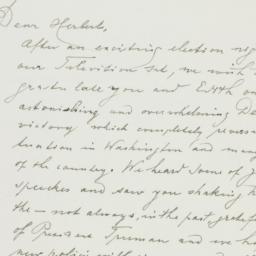 Dear Herbert,
After an exciting election nig
our Television set, we wish
gratulate you and Edith on
astonishing and overwhelming De
victory which completely revers
tuation in Washington and many
of the country. We heard some of y
speeches and saw you shaking h
the — not always, in the past, gratef
of President Truman and we ho
new policy with